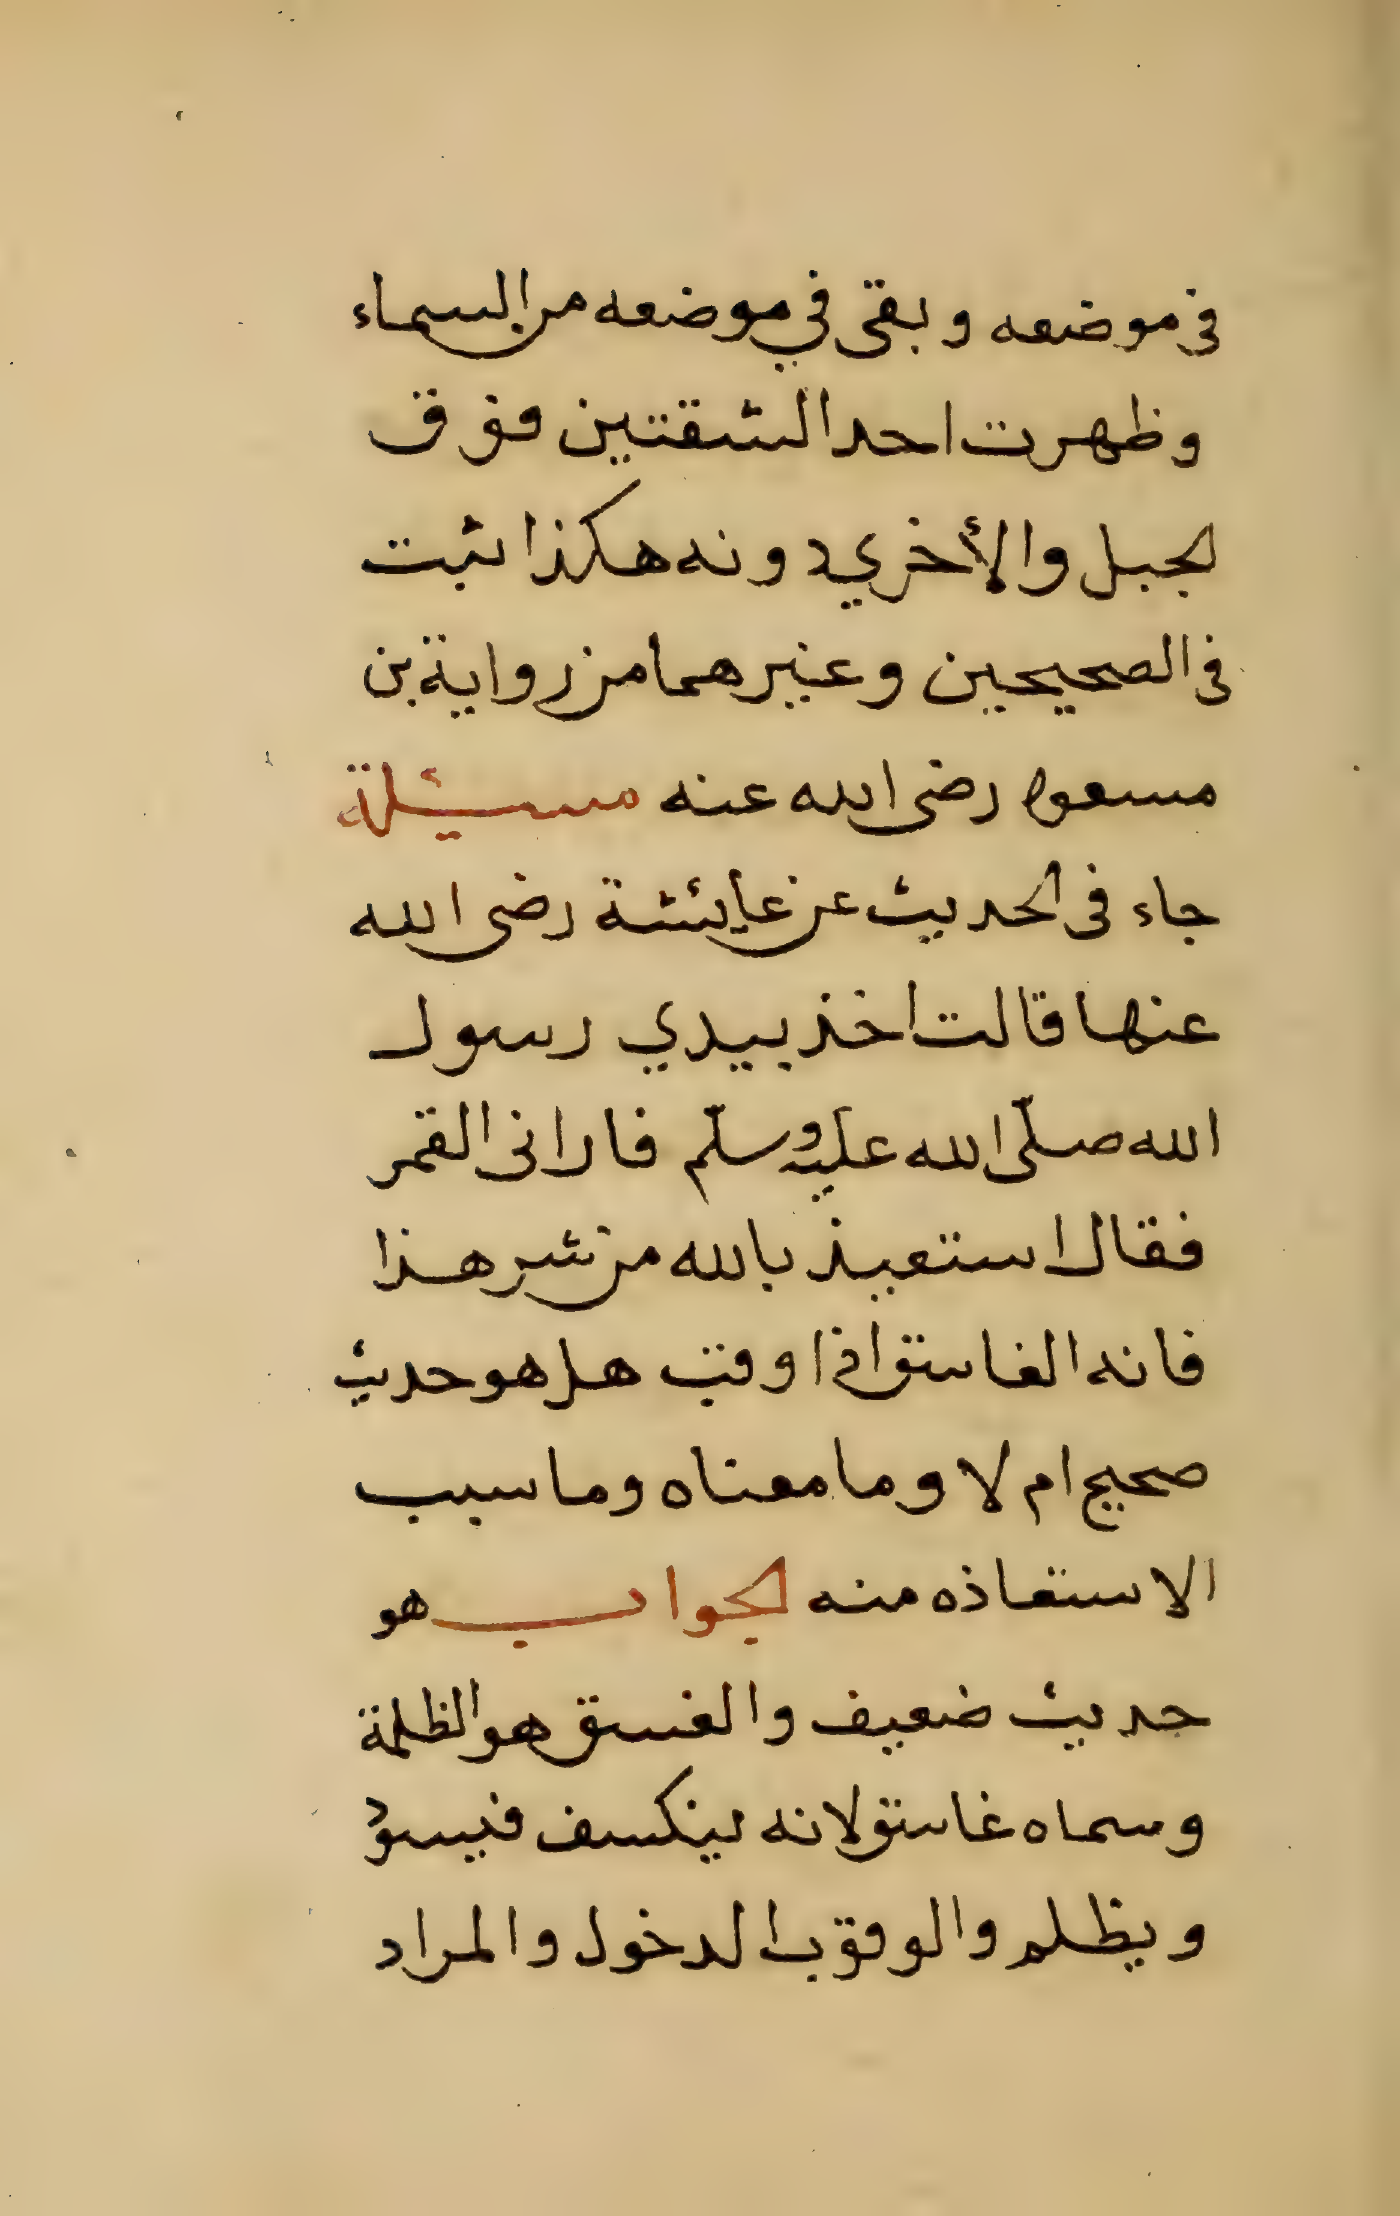 في موضعه وبقى في موضعه من السماء
وظهرت احد الشقتين فوق
لجبل والأخري دونه هكذا ثبت
فى الصحيحين وغيرهما من رواية بن
مسعود رضى الله عنه مسئلة
جاء فى الحديث عن عايئشة رضى الله
عنها قالت اخذ بيدي رسول
الله صلّى الله عليه وسلّم فارانى القمر
فقال استعيذ بالله من شر هذا
فانه الغاسق اذا وقب هل هو حديث
صحيح ام لا وما معناه وما سبب
الاستعاذه منه لجواب هو
حديث ضعيف والغسق هو الظلمة
وسماه غاسق لانه لينكسف فيسود
ويظلم والوقوب الدخول والمراد